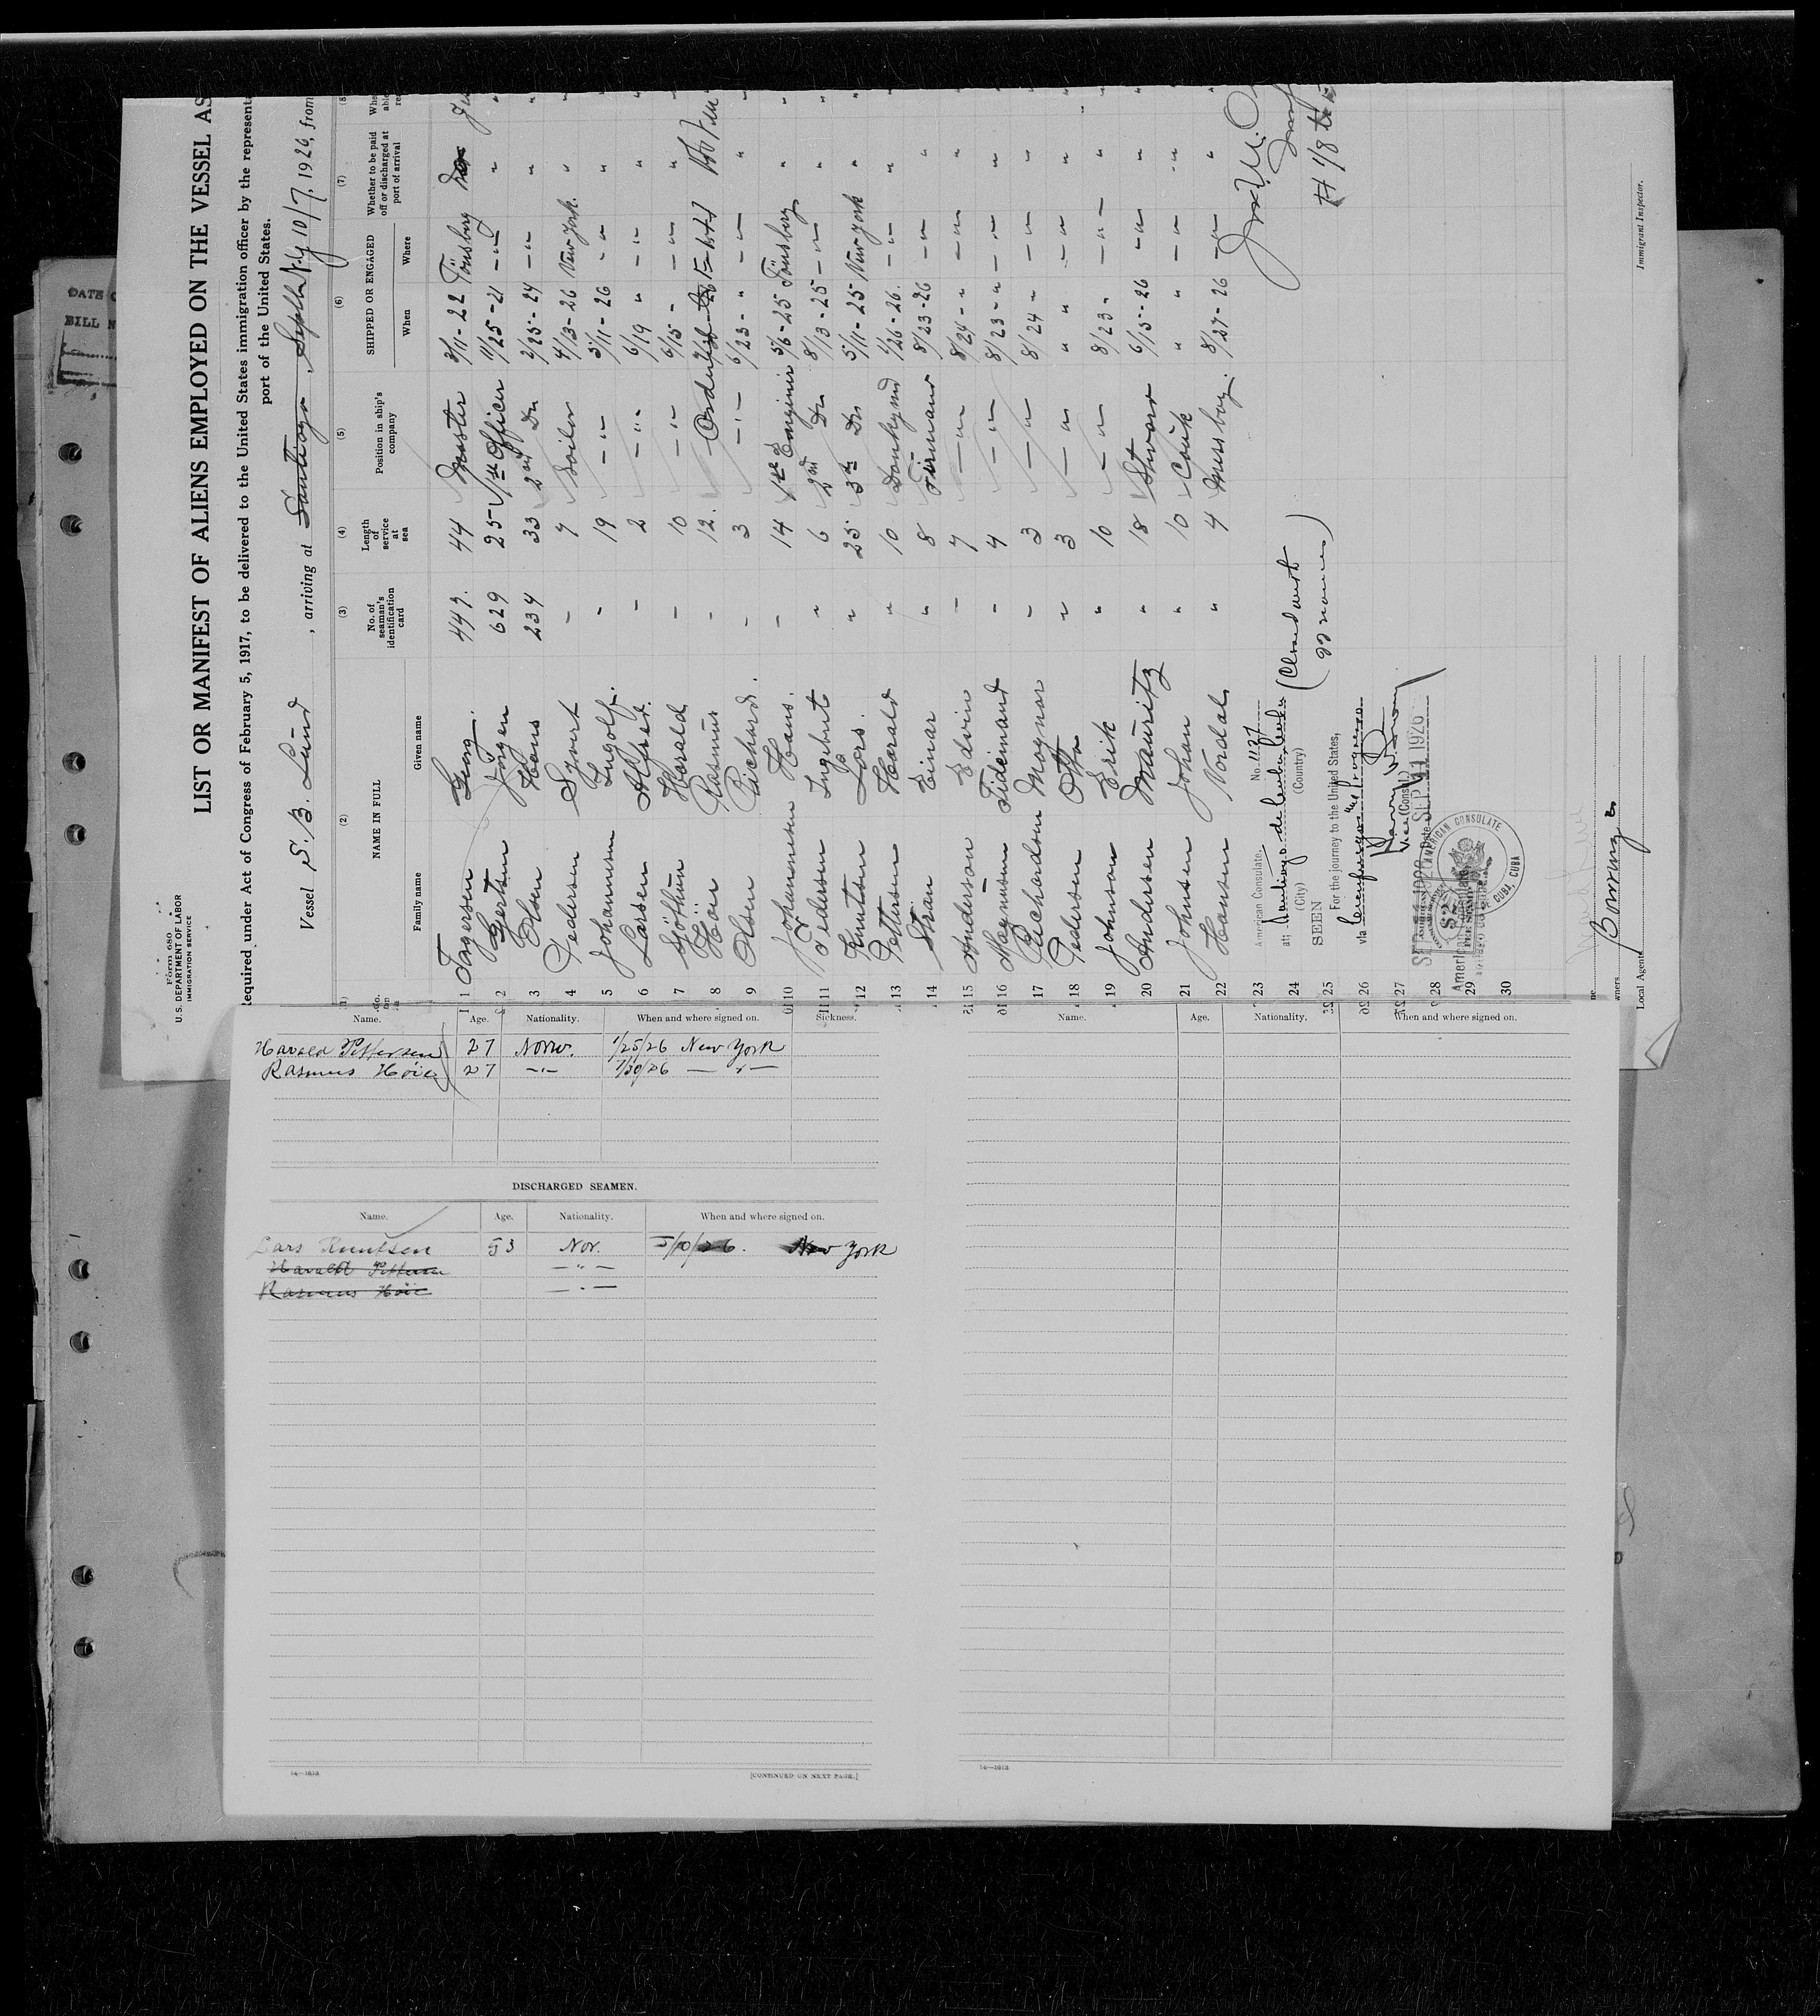 Form 680
U. S. DEPARTMENT OF LABOR
IMMIGRATION SERVICE
LIST OR MANIFEST OF ALIENS EMPLOYED ON THE VESSEL AS
equired under Act of Congress of February 5, 1917, to be delivered to the United States immigration officer by the representa
port of the United States.
Vessel S. B. Lund, arriving at Santiago 10/7, 1926, from
(2) (3) (4) (5) (6) (7)
NAME IN FULL No. of seaman's identification card Length of service at sea Position in ship's company SHIPPED OR ENGAGED Whether to be paid off or discharged at port of arrival
Family name Given name When Where
1 Fagersen Georg. 447. 44 Master 3/11-22 Tönsberg
2 Gertsen Jörgen 629 25 1st Officer 11/25-21 -"-
3 Olsen Hans 234 33 2nd Do 2/25-24 -"- "
4 Pedersen Sjovert - 7 Sailor 4/13-26 New York. "
5 Johannessen Ingolf. - 19 -"- 5/11-26 -"- "
6 Larsen Alfred. - 2 -"- 6/19 " -"- "
7 Sjöthun Harald - 10 -"- 6/15 - -"- "
8 Höie Rasmus - 12.
9 Olsen Richard. - 3 -"- 6/23 - " -"- "
10 Johannessen Hans. - 14 1st Enginier 5/6-25 Tönsberg "
11 Pedersen Ingebret " 6 2nd Do 8/13-25 -"- "
12 Knutsen Lars. " 25 3rd Do 5/11-25 New York "
13 Pettersen Harald " 10 Donkeymd 1/26-26. -"- "
14 Strän Einar " 8 Firemand 8/23-26 -"- "
15 Anderson Edvin - 7 -"- 8/24 - " -"- "
16 Magnusen Fideinand - 4 -"- 8/23 - " -"- "
17 Richardsen Magnar - 3 -"- 8/24 - -"- "
18 Pedersen Otto " 3 -"- " -"- "
19 Johnson Erik " 10 -"- 8/23 - -"- "
20 Andersen Mauritz " 18 Stuard 6/15-26 -"- "
21 Johnsen Johan " 10 Couk " -"- "
22 Hansen Nordal. " 4 Messboy. 8/27-26 -"- "
23 American Consulate, No. 1127
24 at; Santiago de Cuba, Cuba (Closed out
(City) (Country) 22 names)
25 SEEN
For the journey to the United States,
26 via
27
28
29
30
Vice (Consul.)
AMERICAN CONSULATE
DE CUBA, CUBA
$2
Bomring
Local Agents
Immigrant Inspector.
Name. Age. Nationality. When and where signed on. Sickness.
Harald Pettersen 27 Norw. 1/25/26 New York
Rasmus Höie 27 -"- 7/30/26 - " -
DISCHARGED SEAMEN.
Name. Age. Nationality. When and where signed on.
Lars Knutsen 53 Nor. 5/10/26. New York
Harald Pettersen -"-
Rasmus Höie -"-
14—1613
[CONTINUED ON NEXT PAGE.]
Name. Age. Nationality. When and where signed on.
14—1613